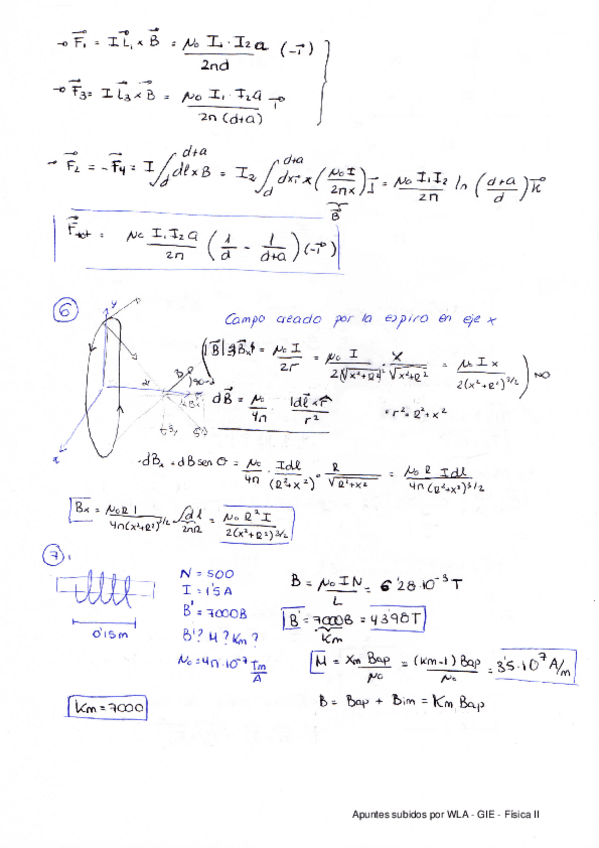 → F⃗₁ = I L⃗₁ × B⃗ = μ₀ I₁ · I₂ a / 2πd (-i⃗)
→ F⃗₃ = I l⃗₃ × B⃗ = μ₀ I₁ · I₂ a / 2π (d+a) i⃗
→ F⃗₂ = - F⃗₄ = I ∫_d^{d+a} dl × B = I₂ ∫_d^{d+a} dx i⃗ × (μ₀ I / 2πx) j⃗ = μ₀ I₁ I₂ / 2π ln (d+a / d) k⃗
B
F⃗tot = μ₀ I₁ I₂ a / 2π (1/d - 1/d+a) (-i⃗)
6
y
Campo creado por la espira en eje x
= μ₀ I / 2r = μ₀ I / 2√(x²+R²) · x / √(x²+R²) = μ₀ I x / 2(x²+R²)^3/2 ) NO
dB⃗ = μ₀ / 4π |dl⃗ × r⃗| / r²
r² = R² + x²
dBₓ = dB sen θ = μ₀ / 4π · I dl / (R²+x²) · R / √(R²+x²) = μ₀ R I dl / 4π (R²+x²)^3/2
Bₓ = μ₀ R I / 4π(x²+R²)^3/2 ∫ dl = μ₀ R² I / 2(x²+R²)^3/2
2πR
7.
N = 500
I = 1'5A
B' = 7000B
B'? M? Km?
μ₀ = 4π·10⁻⁷ Tm/A
0'15m
B = μ₀ I N / L = 6'28·10⁻³ T
B' = 7000B = 43'98T
Km
M = Xm Bap / μ₀ = (Km-1) Bap / μ₀ = 3'5·10⁷ A/m
Km = 7000
B = Bap + Bim = Km Bap
Apuntes subidos por WLA - GIE - Física II